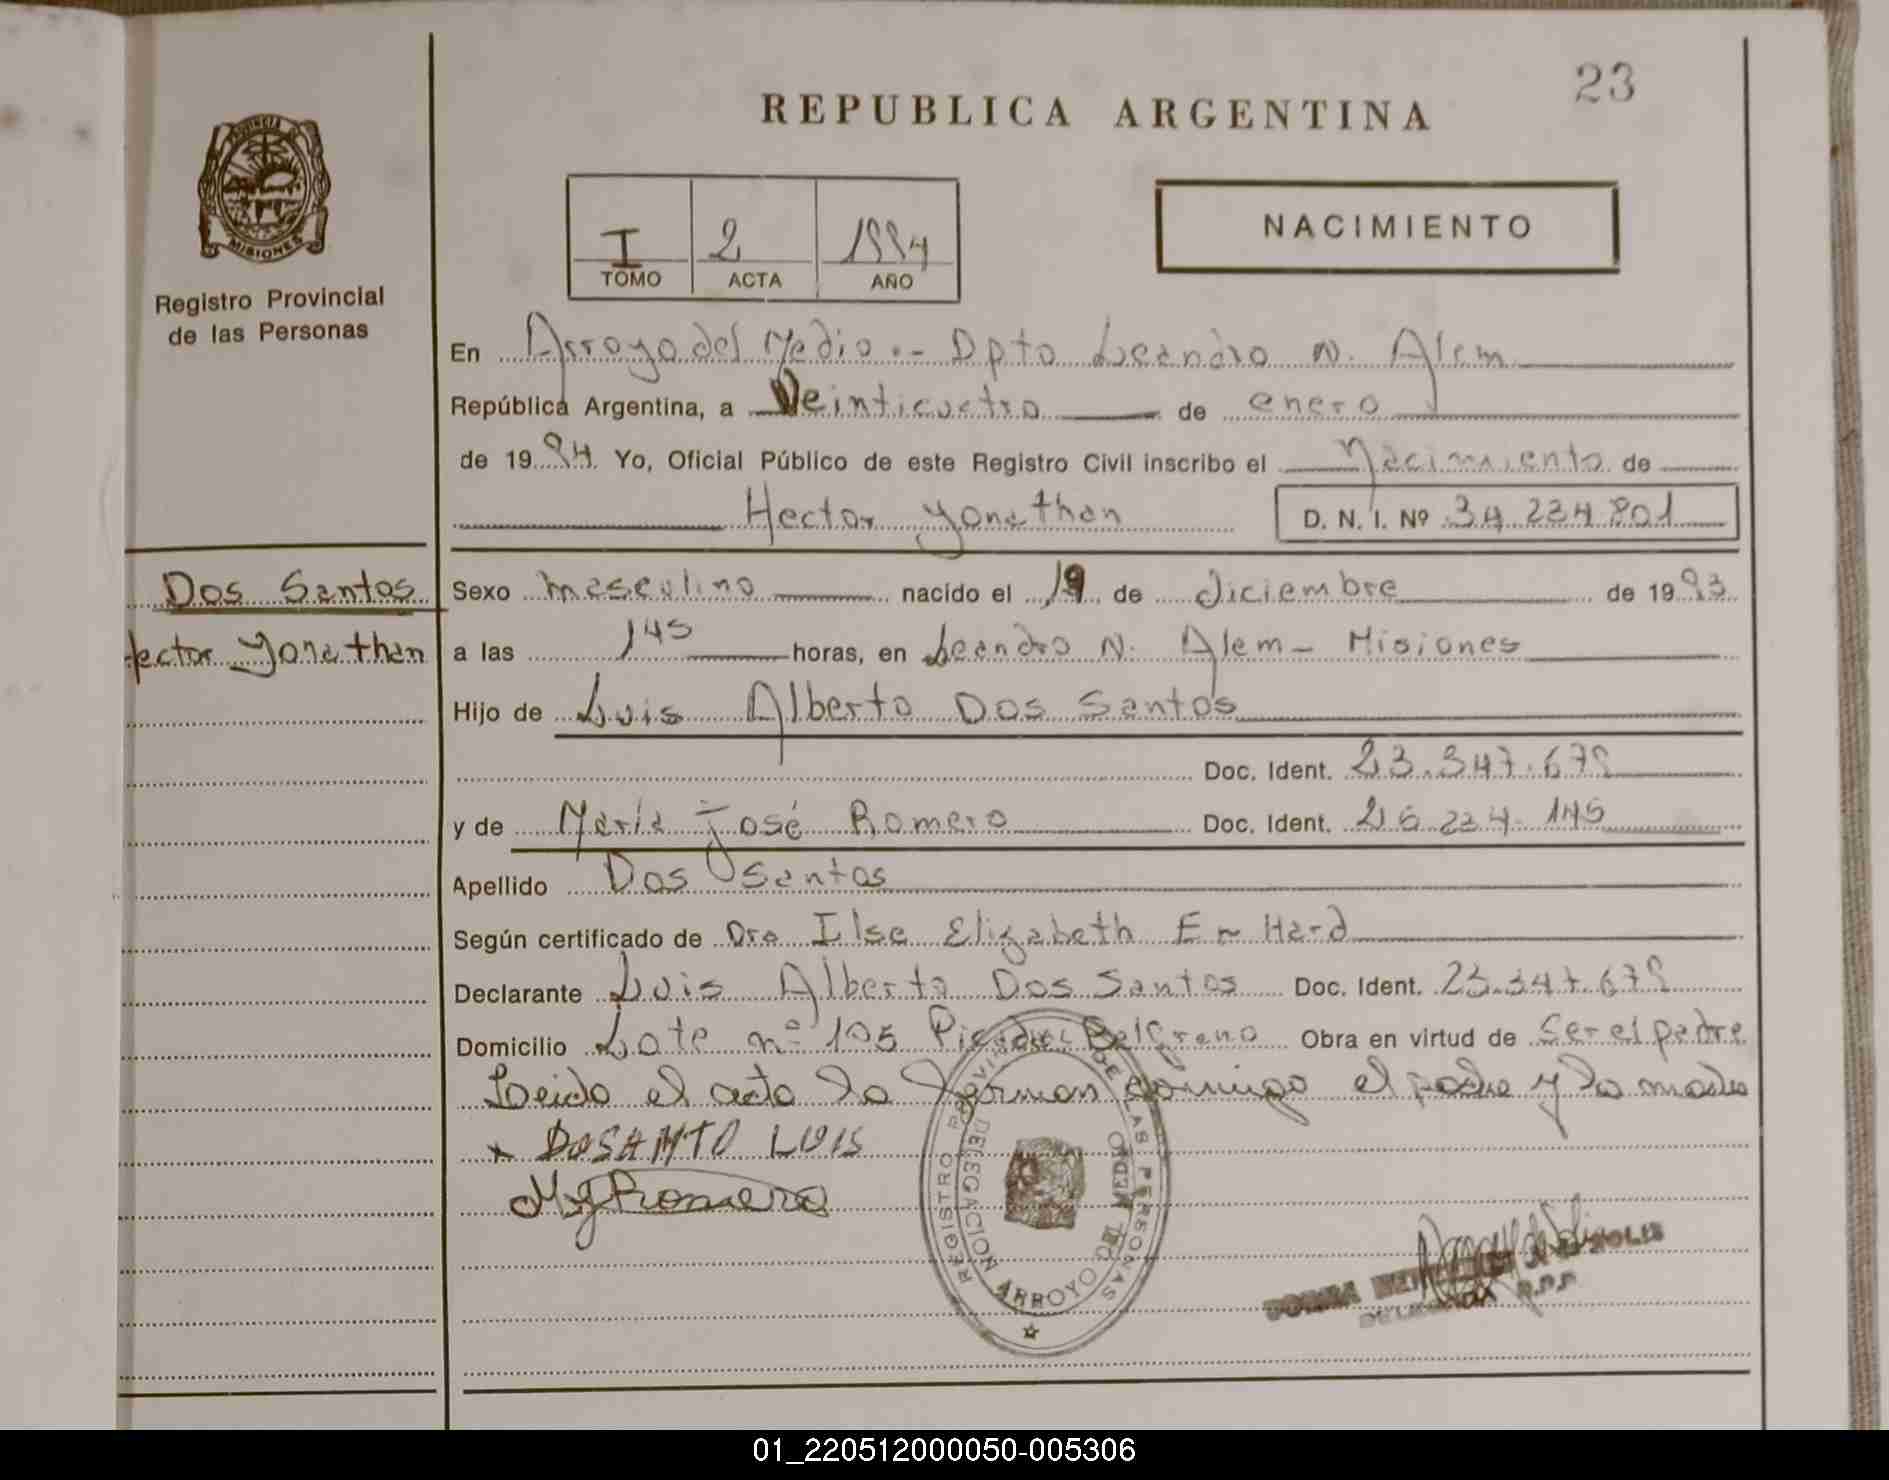 23
REPUBLICA ARGENTINA
PROVINCIA DE
MISIONES
Registro Provincial
de las Personas
I 2 1994
TOMO ACTA AÑO
NACIMIENTO
En Arroyo del Medio.- Dpto Leandro N. Alem
República Argentina, a Veinticuatro de enero
de 1994. Yo, Oficial Público de este Registro Civil inscribo el Nacimiento de
Hector Yonathan D. N. I. Nº 34.234.801
Dos Santos
Hector Yonathan
Sexo masculino nacido el 19 de diciembre de 1993
a las 1 45 horas, en Leandro N. Alem - Misiones
Hijo de Luis Alberto Dos Santos
Doc. Ident. 23.347.679
y de María José Romero Doc. Ident. 26.224.145
Apellido Dos Santos
Según certificado de Dra Ilse Elizabeth Hard
Declarante Luis Alberto Dos Santos Doc. Ident. 23.347.679
Domicilio Lote nº 105 Picada Belgrano Obra en virtud de ser el padre
Leido el acta la forman conmigo el padre y la madre
DOSANTO LUIS
MJRomero
REGISTRO PROVINCIAL DE LAS PERSONAS
DELEGACION ARROYO DEL MEDIO
01_220512000050-005306